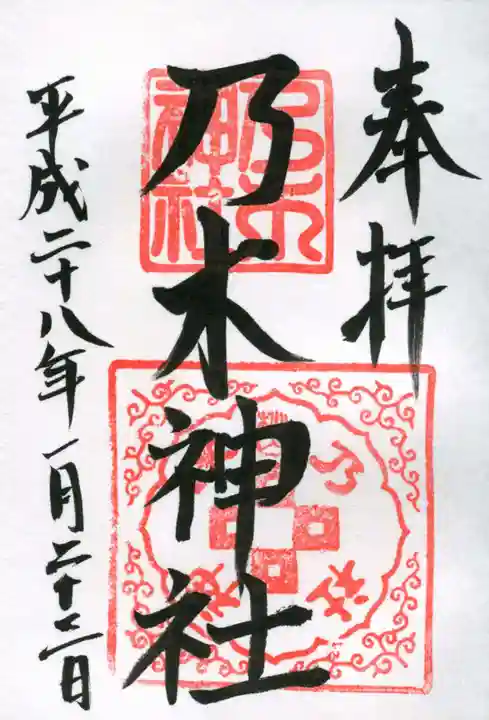 奉拝
乃木神社
平成二十八年一月二十二日
乃木
神社